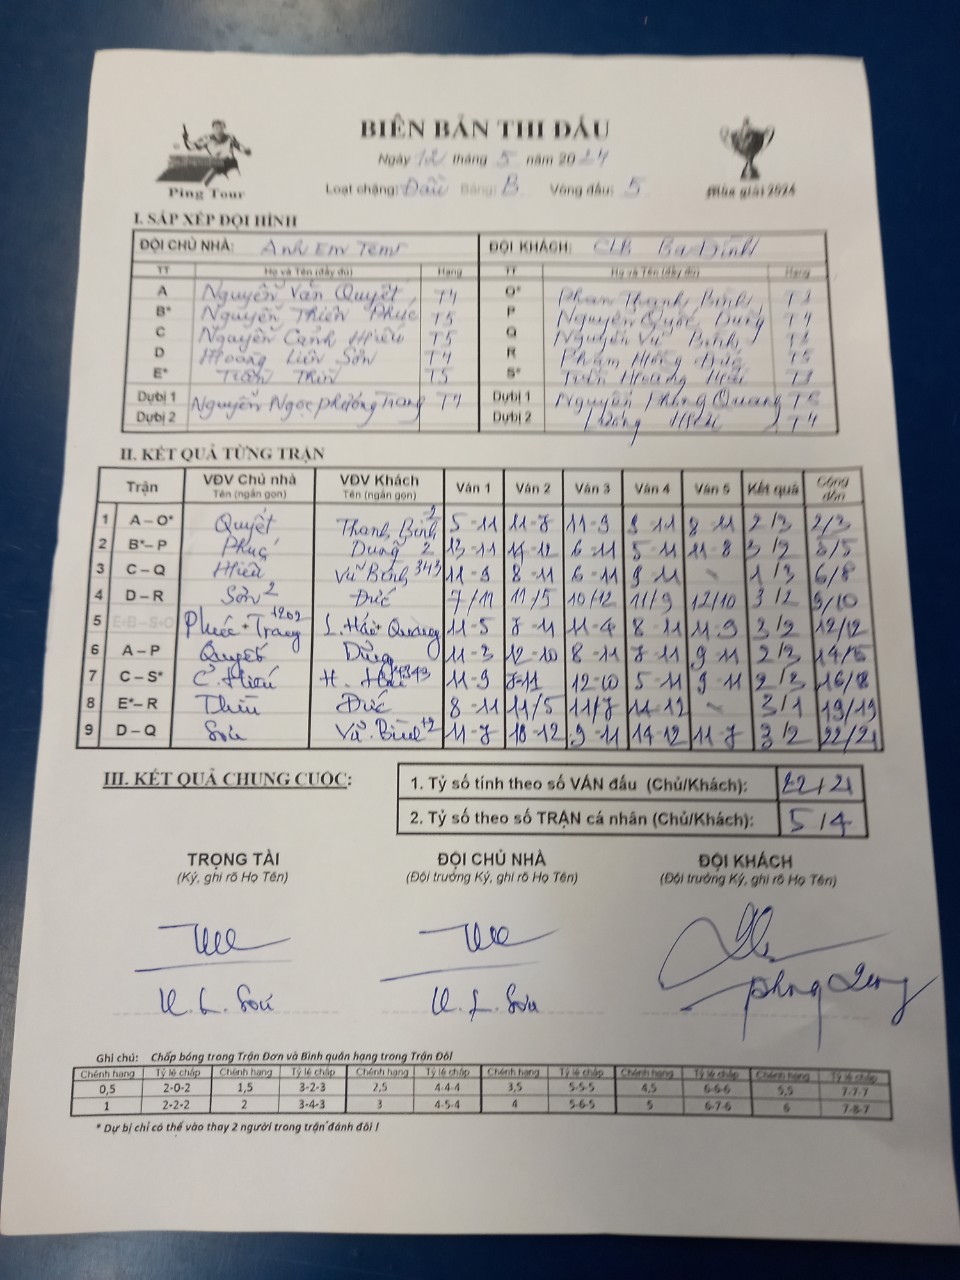 BIÊN BẢN THI ĐẤU
Ngày 12 tháng 5 năm 2024
Ping Tour
Loạt chặng: Đấu Bảng: B Vòng đấu: 5
Mùa giải 2024
I. SẮP XẾP ĐỘI HÌNH
ĐỘI CHỦ NHÀ: Anh Em Team ĐỘI KHÁCH: CLB Ba Đình
TT Họ và Tên (đầy đủ) Hạng TT Họ và Tên (đầy đủ) Hạng
A Nguyễn Văn Quyết T4 O* Phan Thanh Bình
B* Nguyễn Thiên Phúc T5 P Nguyễn Quốc Dũng T4
C Nguyễn Cảnh Hiếu T5 Q Nguyễn Vũ Bình
D Hoàng Liên Sơn T4 R Phạm Hồng Đức T5
E* Trần Thìn T5 S* Trần Hoàng Hải
Dự bị 1 Nguyễn Ngọc Phương Trang T4 Dự bị 1 Nguyễn Phong Quang T5
Dự bị 2 Dự bị 2 Lương T4
II. KẾT QUẢ TỪNG TRẬN
Trận VĐV Chủ nhà Tên (ngắn gọn) VĐV Khách Tên (ngắn gọn) Ván 1 Ván 2 Ván 3 Ván 4 Ván 5 Kết quả Cộng dồn
1 A – O* Quyết Thanh Bình 5-11 11-8 11-9 9-11 8-11 2/3 2/3
2 B* – P Phúc Dũng 2 13-11 14-12 6-11 5-11 11-8 3/2 5/5
3 C – Q Hiếu Vũ Bình 343 11-9 8-11 6-11 9-11 - 1/3 6/8
4 D – R Sơn 2 Đức 7/11 11/5 10/12 11/9 12/10 3/2 9/10
5 E+B – S+O Phúc + Trang L. Hải + Quang 11-5 8-11 11-4 8-11 11-9 3/2 12/12
6 A – P Quyết Dũng 11-3 12-10 8-11 7-11 9-11 2/3 14/15
7 C – S* C. Hiếu H. Hải 11-9 7-11 12-10 5-11 9-11 2/3 16/18
8 E* – R Thìn Đức 8-11 11/5 11/7 14-12 - 3/1 19/19
9 D – Q Sơn Vũ. Bình +2 11-7 10-12 9-11 14-12 11-7 3/2 22/21
III. KẾT QUẢ CHUNG CUỘC:
1. Tỷ số tính theo số VÁN đấu (Chủ/Khách): 22/21
2. Tỷ số theo số TRẬN cá nhân (Chủ/Khách): 5/4
TRỌNG TÀI ĐỘI CHỦ NHÀ ĐỘI KHÁCH
(Ký, ghi rõ Họ Tên) (Đội trưởng Ký, ghi rõ Họ Tên) (Đội trưởng Ký, ghi rõ Họ Tên)
H. L. Sơn H. L. Sơn Phong Quang
Ghi chú: Chấp bóng trong Trận Đơn và Bình quân hạng trong Trận Đôi
Chênh hạng Tỷ lệ chấp Chênh hạng Tỷ lệ chấp Chênh hạng Tỷ lệ chấp Chênh hạng Tỷ lệ chấp Chênh hạng Tỷ lệ chấp Chênh hạng Tỷ lệ chấp
0,5 2-0-2 1,5 3-2-3 2,5 4-4-4 3,5 5-5-5 4,5 6-6-6 5,5 7-7-7
1 2-2-2 2 3-4-3 3 4-5-4 4 5-6-5 5 6-7-6 6 7-8-7
* Dự bị chỉ có thể vào thay 2 người trong trận đánh đôi !